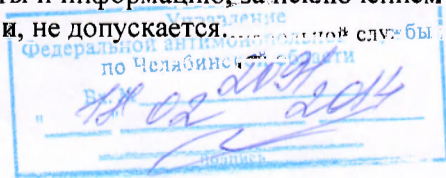 ты и информацию, за исключением
и, не допускается.
Управление
Федеральной антимонопольной службы
по Челябинской области
Вх. № 2091
"18" 02 2014
подпись